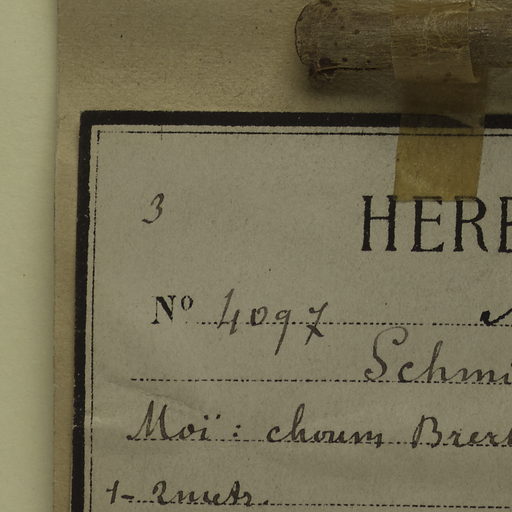 3
HERB
Nº 4097
Schmi
Moï: choum Brer
1-2 metr.